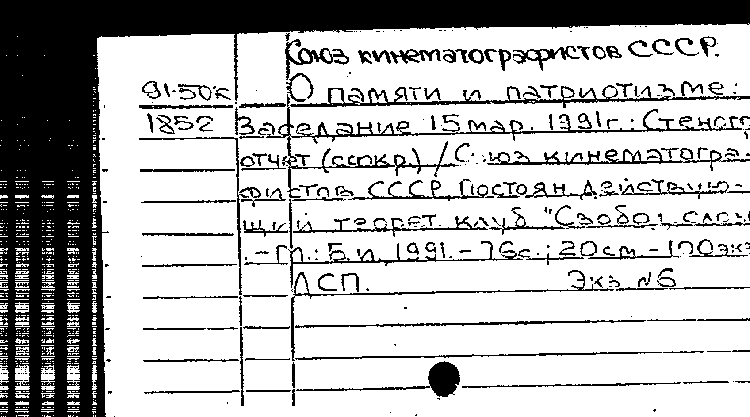 Союз кинематографистов СССР.
91-50к О памяти и патриотизме:
1852 Заседание 15 мар. 1991г.: Стеногр
отчет (сокр.) / Союз кинематогра-
фистов СССР, Постоян. действую-
щий теорет. клуб "Свобод. слов
.-М.: Б.и., 1991.-76с.; 20см -100экз
ДСП. Экз №6